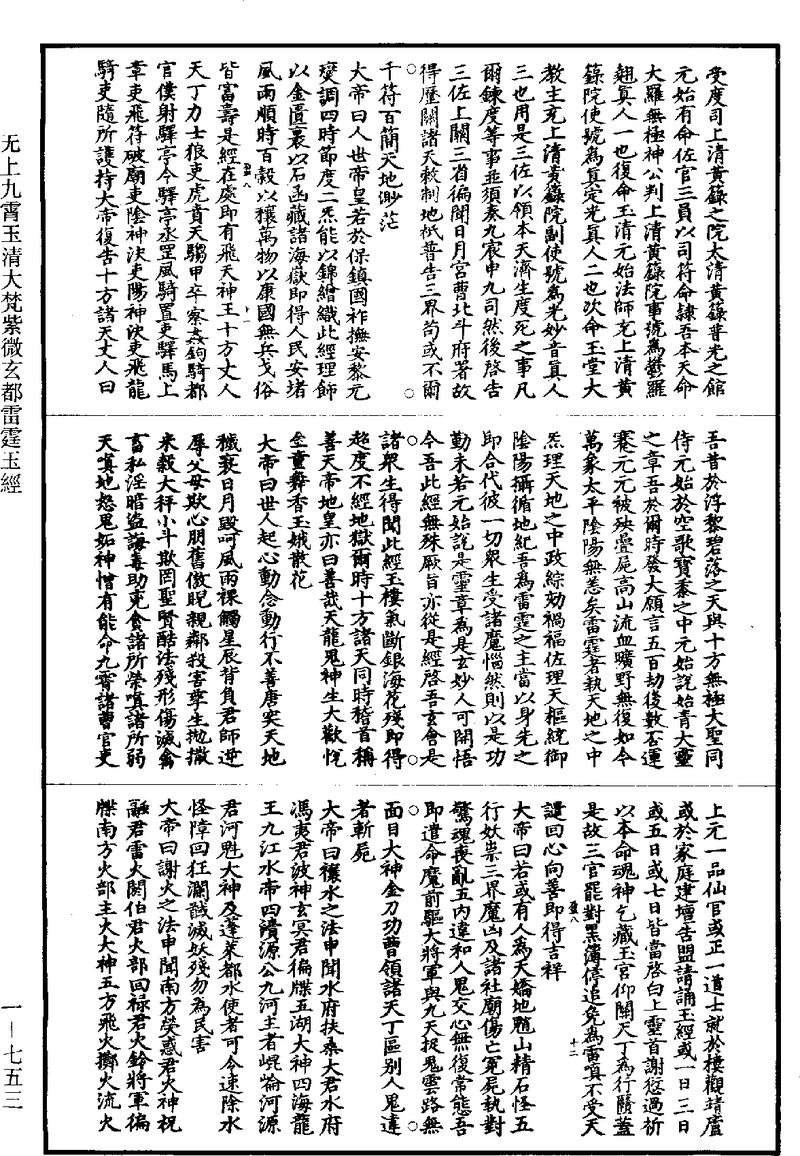 无上九霄玉清大梵紫微玄都雷霆玉經
一－七五三
受度司上清黃籙之院太清黃籙普光之館
元始有命佐官三員以司符命隸吾本天命
大羅無極神公判上清黃籙院事號為鬱羅
翹真人一也復命玉清元始法師充上清黃
籙院使號為真定光真人二也次命玉堂大
教主充上清黃籙院副使號為光妙音真人
三也用是三佐以領本天濟生度死之事凡
爾鍊度等事並須奏九宸申九司然後啓告
三佐上關三省徧聞日月宮曹北斗府署故
得歷關諸天敕制地祇普告三界苟或不爾
千符百簡天地渺茫
大帝曰人世帝皇若於保鎮國祚撫安黎元
燮調四時節度二炁能以錦繒織此經理飾
以金匱裹以石函藏諸海嶽即得人民安堵
風雨順時百穀以穰萬物以康國無兵戈俗
皆富壽是經在處即有飛天神王十方丈人
天丁力士狼吏虎賁天騶甲卒察姦鉤騎都
官僕射驛亭令驛亭丞罡風騎置吏驛馬上
章吏飛符破廟吏陰神決吏陽神決吏飛龍
騎吏隨所護持大帝復告十方諸天丈人曰
吾昔於浮黎碧落之天與十方無極大聖同
侍元始於空歌寶黍之中元始說始青大靈
之章吾於爾時發大願言五百劫後數否運
蹇元元被殃疊屍高山流血曠野無復如今
萬象太平陰陽無恙矣雷霆者執天地之中
炁理天地之中政綜劾禍福佐理天樞統御
陰陽攝循地紀吾為雷霆之主當以身先之
即合代彼一切衆生受諸魔惱然則以是功
勤未若元始說是靈章為是玄妙人可開悟
今吾此經無殊厥旨亦從是經啓吾玄會是
諸衆生得聞此經玉樓氣斷銀海花殘即得
超度不經地獄爾時十方諸天同時稽首稱
善天帝地皇亦曰善哉天龍鬼神生大歡悅
金童舞香玉娥散花
大帝曰世人起心動念動行不善唐突天地
穢褻日月毀呵風雨裸觸星辰背負君師逆
辱父母欺心朋舊傲睨親鄰殺害孳生拋撒
米穀大秤小斗欺罔聖賢酷法殘形傷滅禽
畜私淫暗盜誨毒助兇食諸所榮嗔諸所弱
天嗔地怨鬼妬神憎有能命九霄諸曹官吏
上元一品仙官或正一道士就於樓觀靖廬
或於家庭建壇告盟請誦玉經或一日三日
或五日或七日皆當啓白上靈首謝愆過祈
以本命魂神乞藏玉宮仰關天丁為行醫蓋
是故三官罷對黑簿停追免為雷嗔不受天
譴回心向善即得吉祥
大帝曰若或有人為天嬌地魈山精石怪五
行妖祟三界魔凶及諸社廟傷亡冤屍執對
驚魂喪亂五內違和人鬼交心無復常態吾
即遣命魔前驅大將軍與九天捉鬼雲路無
面目大神金刀功曹領諸天丁區別人鬼違
者斬屍
大帝曰禳水之法申聞水府扶桑大君水府
馮夷君波神玄冥君徧牒五湖大神四海龍
王九江水帝四瀆源公九河王者崐崙河源
君河魁大神及蓬萊都水使者可令速除水
怪障回狂瀾誠滅妖殘勿為民害
大帝曰謝火之法申聞南方熒惑君火神祝
融君雷火閼伯君火部回祿君火鈴將軍徧
牒南方火部主火大神五方飛火擲火流火